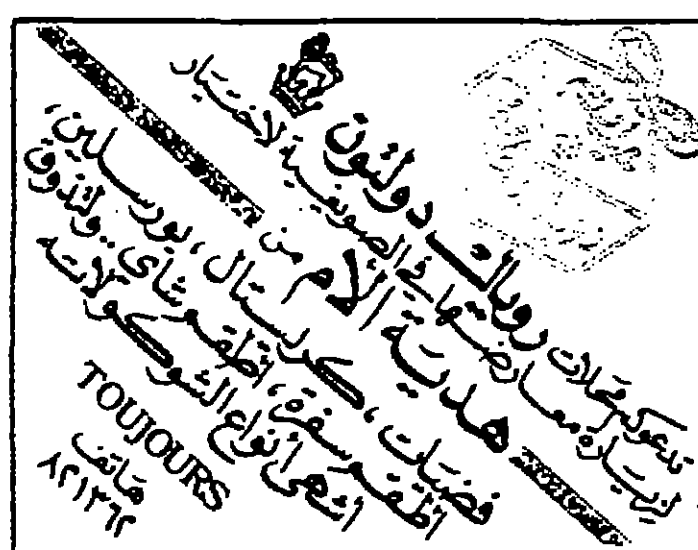 تدعوكم محلات رويال دولتون
لزيارة معارضها في الصويفية لاختيار
هدية الأم من
فضيات، كريستال، بورسلين،
أطقم سفرة، أطقم شاي.. ولتذوق
اشهى أنواع الشوكولاته
TOUJOURS
هاتف
٨٢١٣٦٢